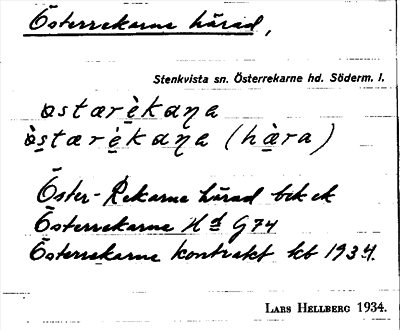 Österrekarne härad,
Stenkvista sn. Österrekarne hd. Söderm. l.
østærèkaṇa
ø̀stærékaṇa (hæ̀ra)
Öster-Rekarne härad bek ek
Österrekarne Hd G74
Österrekarne kontrakt kb 1934.
LARS HELLBERG 1934.